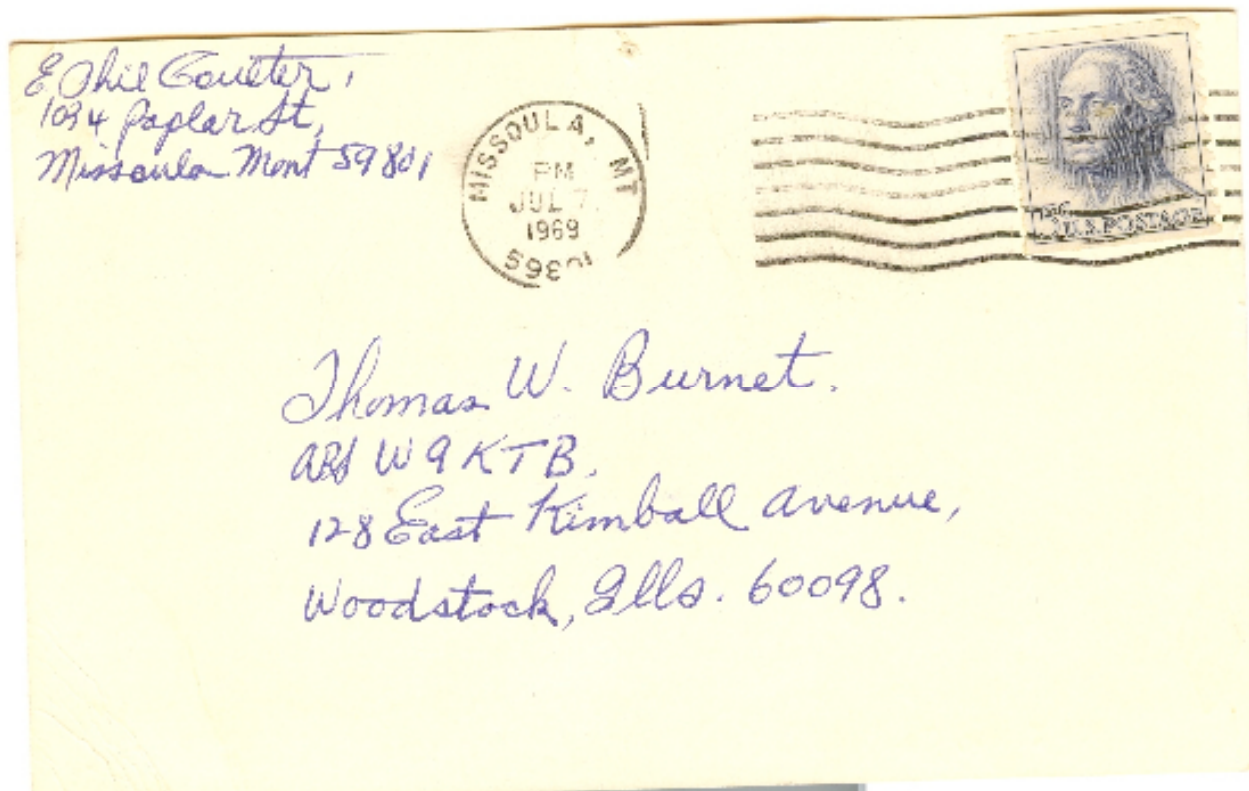 E Phil Coulter,
1034 Poplar St,
Missoula Mont 59801
MISSOULA, MT
PM
JUL 7
1969
Thomas W. Burnet.
ARS W9KTB,
128 East Kimball Avenue,
Woodstock, Ills. 60098.
U.S. POSTAGE